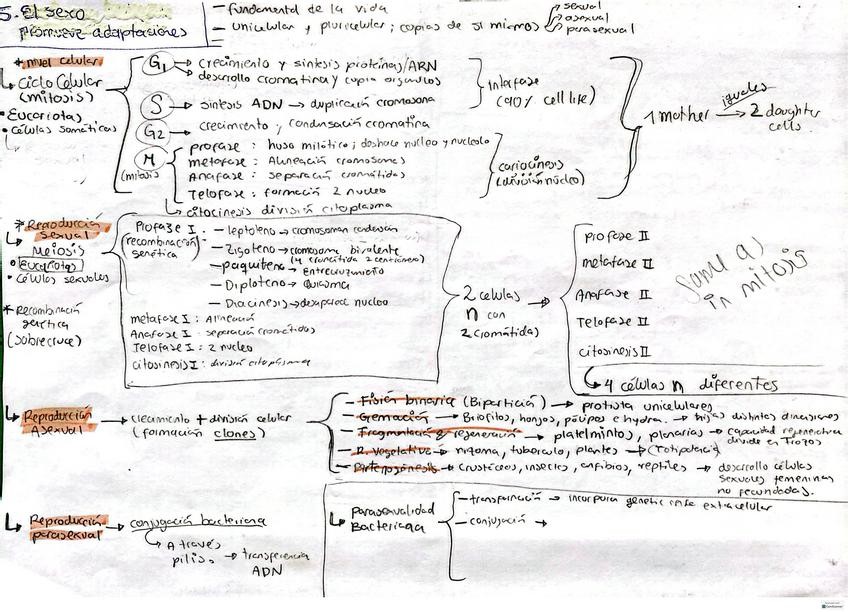 5. El sexo promueve adaptaciones
- fundamental de la vida
- unicelular y pluricelular; copias de sí mismos
sexual
asexual
parasexual
* nivel celular
Ciclo Celular (mitosis)
• Eucariotas
• Células somáticas
G1 → crecimiento y síntesis proteínas/ARN
→ desarrollo cromatina y copia organulos
S → síntesis ADN → duplicación cromosoma
G2 → crecimiento, condensación cromatina
Interfase (90% cell life)
M (mitosis)
profase: huso mitótico; deshace nucleo y nucleolo
metafase: Alineación cromosomas
Anafase: separación cromátidas
Telofase: formación 2 nucleo
cariocinesis (división núcleo)
→ citocinesis división citoplasma
1 mother → iguales 2 daughter cells.
* Reproducción sexual
Meiosis
• Eucariotas
• Células sexuales
* Recombinación genética (sobrecruce)
Profase I: (recombinación genética)
- leptoteno → cromosomas condensan
- Zigoteno → cromosoma bivalente
(4 cromátida 2 centromero)
- paquiteno → Entrecruzamiento
- Diploteno → Quiasma
- Diacinesis → desaparece nucleo
metafase I: Alineación
Anafase I: separación cromátidas
Telofase I: 2 nucleo
citosinesis I: división citoplasma
2 celulas n con 2 cromátida)
profase II
metafase II
Anafase II
Telofase II
citosinesis II
Same as in mitosis
→ 4 células n diferentes
Reproducción Asexual → crecimiento + división celular (formación clones)
- Fisión binaria (Bipartición) → protista unicelulares
- Gemación → Biofitos, hongos, pólipos e hydra. → hijas distintas dimensiones
- Fragmentación & regeneración → platelmintos, planarias → capacidad regenerativa divide en trozos
- R. vegetativa → rizoma, tuberculo, plantes → (totipotencia)
- Partenogénesis → crustáceos, insectos, anfibios, reptiles → desarrollo células sexuales femeninas no fecundadas.
Reproducción parasexual → conjugación bacteriana
→ A través pilis. → transferencia ADN
parasexualidad Bacteriana
- transformación → incorpora genetic extracelular
- conjugación →
CamScanner